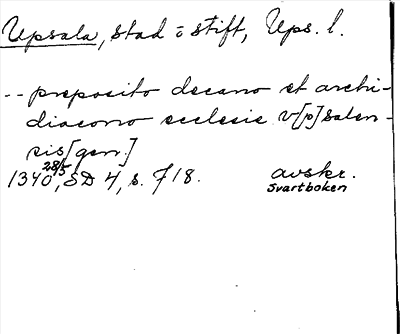 Upsala, stad o stift, Ups. l.
-- preposito decano et archi-
diacono ecclesie v[p]salen-
sis [gen.]
28/5
1340, SD 4, s. 718. avskr.
Svartboken